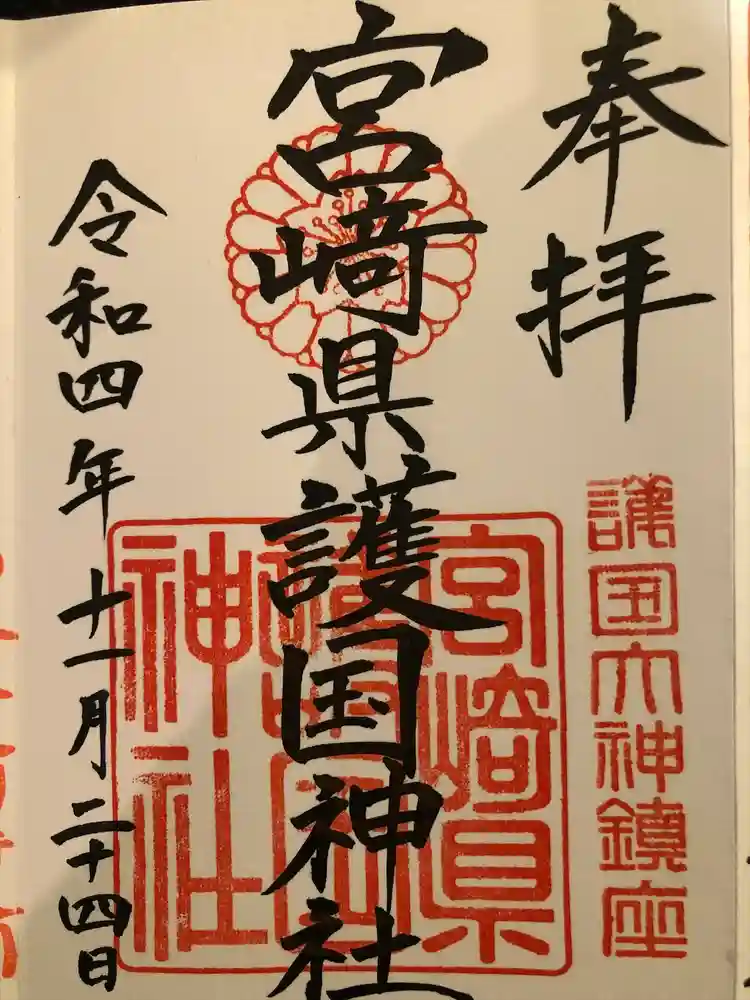 奉拝
護国大神鎮座
宮崎県護国神社
宮崎県護国神社
令和四年十一月二十四日